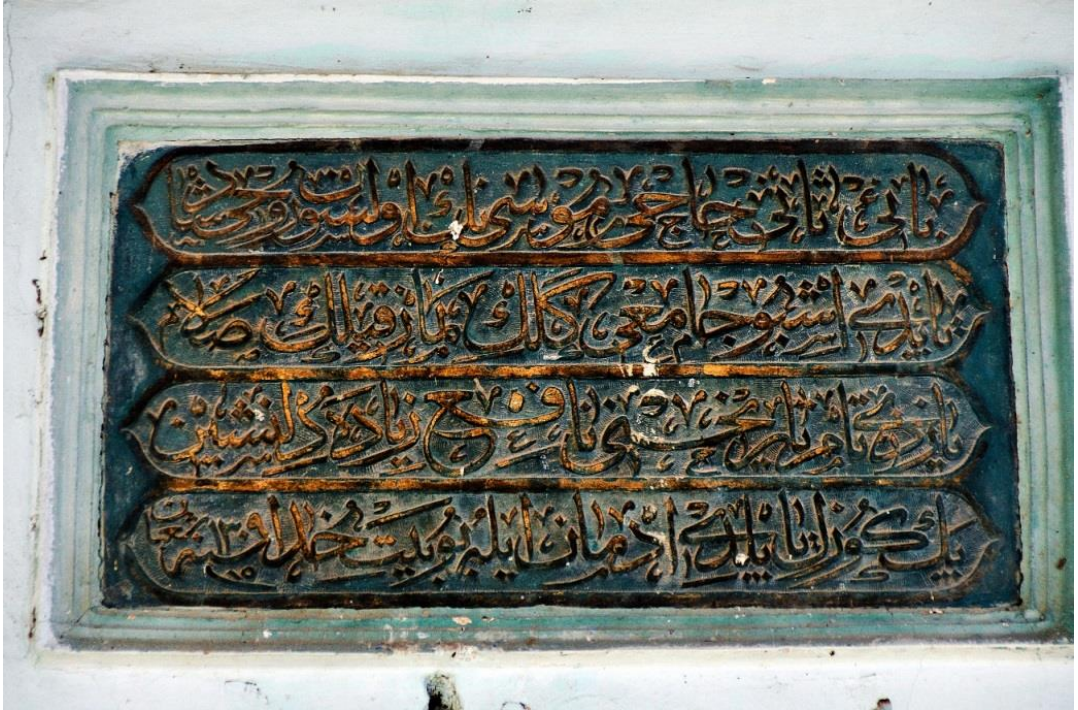 بانئ ثانی حاجی موسی نڭ اولسون روحی شاد
یاپدی اشبو جامعی كلك نماز قیلك صلا
یازدی تام تاریخنی نافع زیاده دلنشین
پك كوزل یاپلدی ادرمان ایله بو بیت خدا سنه ١٣